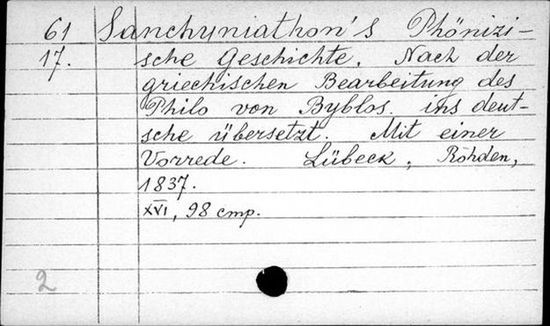 61 Sanchyniathon's Phönizi-
17. sche Geschichte. Nach der
griechischen Bearbeitung des
Philo von Byblos ins deut-
sche übersetzt. Mit einer
Vorrede. Lübeck, Rohden,
1837.
XVI, 98 cmp.
2